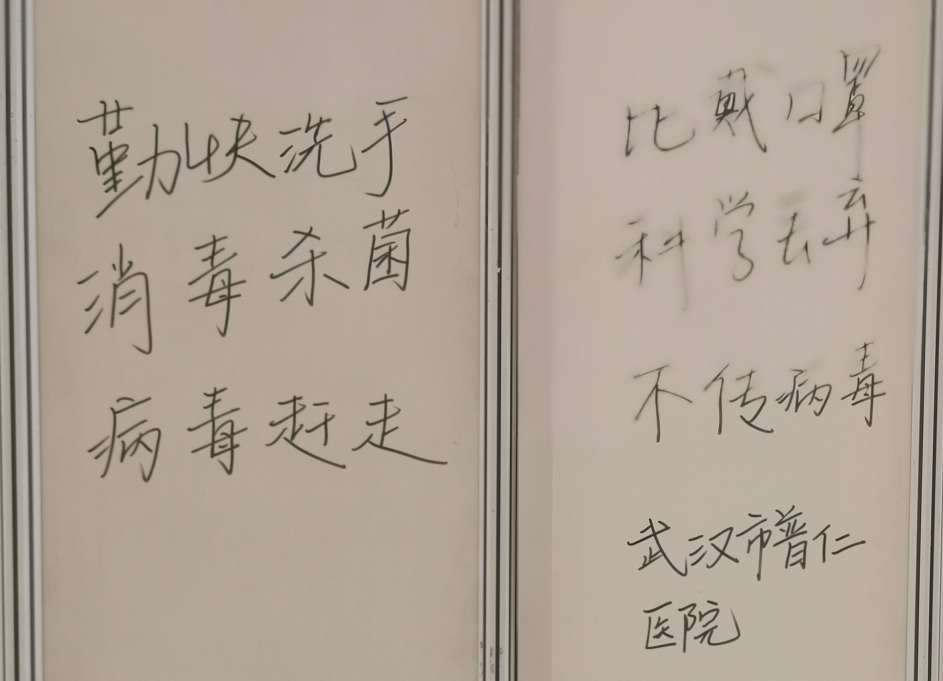 勤快洗手
消毒杀菌
病毒赶走
比戴口罩
科学丢弃
不传病毒
武汉市普仁
医院